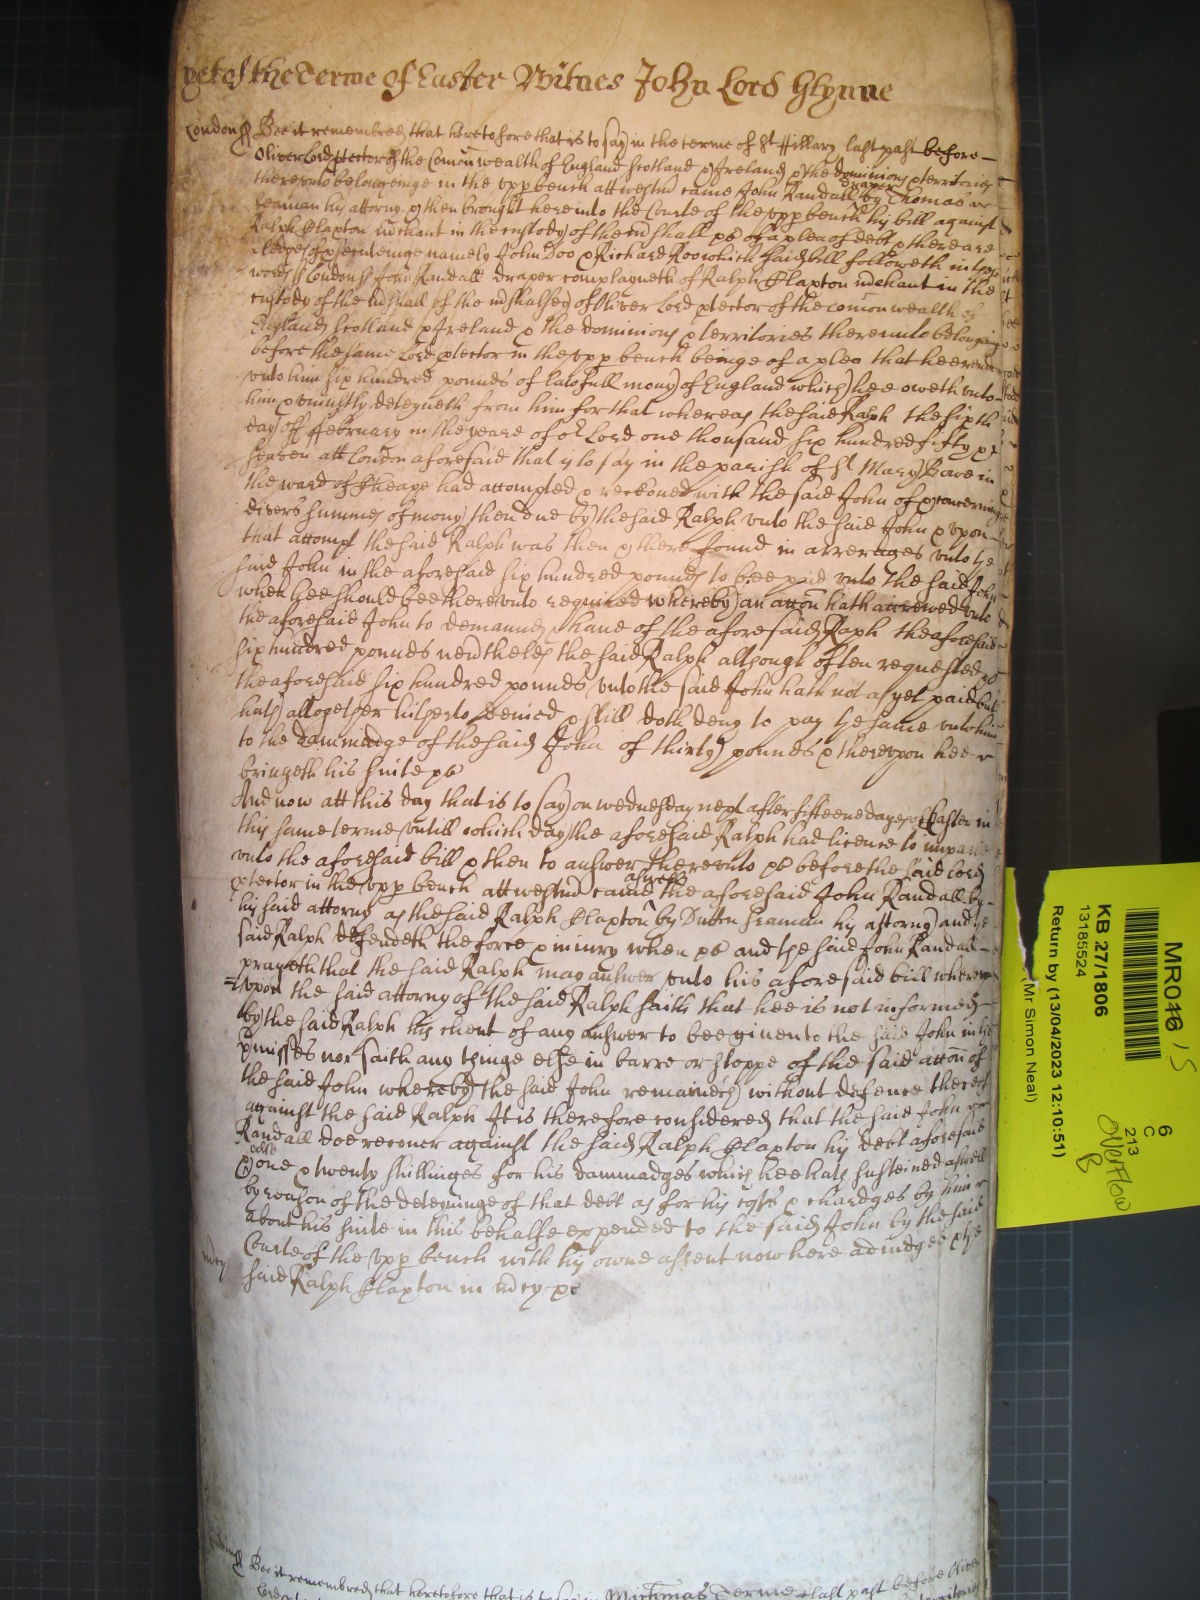 yet of the Terme of Easter Witnes John Lord Glynne
London ss Bee it remembred that heretofore that is to say in the terme of St Hillary last past before
Oliver Lord ptector of the Comon wealth of England Scotland & Ireland & the dominions & territories
thereunto belongeinge in the upp bench att westm came John Randall draper by Thomas
Seaman his attorny & then brought here into the Courte of the upp bench his bill against
Ralph Clapton mchant in the custody of the mshall &c of a plea of debt & there are
pledges of psecuteinge namely John Doo & Richard Roo which said bill followeth in these
words ss London ss John Randall draper complayneth of Ralph Clapton mchant in the
custody of the mshall of the mshalsey of Oliver Lord ptector of the comon wealth of
England Scotland & Ireland & the dominions & territories thereunto belonging
before the same Lord ptector in the upp bench beinge of a plea that hee render
unto him six hundred pounds of lawfull mony of England which hee oweth unto
him & uniustly deteyneth from him for that whereas the said Ralph the sixth
day off ffebruary in the yeare of or Lord one thousand six hundred fifty &
seaven att London aforesaid that is to say in the parish of St Mary Bowe in
the ward of Cheape had accompted & reckoned with the said John of & concerninge
divers summes of mony then due by the said Ralph unto the said John & upon
that accompt the said Ralph was then & there found in arrerages unto the
said John in the aforesaid six hundred pounds to bee paid unto the said John
when hee should bee thereunto required whereby an accon hath accrewed unto
the aforesaid John to demaund & have of the aforesaid Raph the aforesaid
six hundred pounds nevrtheles the said Ralph although often requested &c
the aforesaid six hundred pounds unto the said John hath not as yet paid but
hath altogether hitherto denied & still doth deny to pay the same unto him
to the dammadge of the said John of thirty pounds & thereupon hee
bringeth his suite &c
And now att this day that is to say on wednesday next after fifteene dayes of Easter in
this same terme untill which day the aforesaid Ralph had licence to imparle
unto the aforesaid bill & then to answer thereunto &c before the said Lord
ptector in the upp bench att westm came aswell the aforesaid John Randall by
his said attorny as the said Ralph Clapton by Dutton Seaman his attorny and the
said Ralph defendeth the force & iniury when &c and the said John Randall
prayeth that the said Ralph may answer unto his aforesaid bill where
=upon the said attorny of the said Ralph saith that hee is not informed
by the said Ralph his client of any answer to bee given to the said John in the
pmisses nor saith any thinge else in barre or stoppe of the said accon of
the said John whereby the said John remaineth without defence thereof
against the said Ralph It is therefore considered that the said John
Randall doe recover against the said Ralph Clapton his debt aforesaid
& one & twenty shillinges for his dammadges which hee hath susteined aswell
by reason of the deteyninge of that debt as for his costs & chardges by him
about his suite in this behalfe expended to the said John by the said
Courte of the upp bench with his owne assent now here adiudged & the
mcy said Ralph Clapton in mcy &c
London ss Bee it remembred that heretofore that is to say in Michmas Terme last past before Oliver
MR046 15
KB 27/1806
13185524
Return by (13/04/2023 12:10:51)
(Mr Simon Neal)
6
C
213
overflow
B